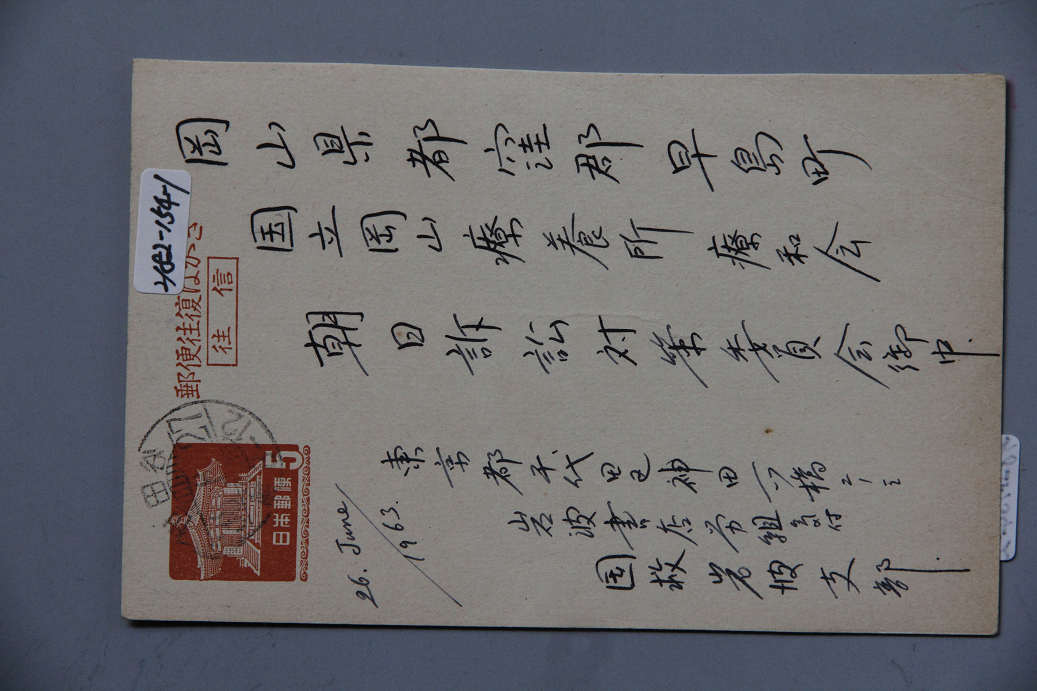 岡山県都窪郡早島町
国立岡山療養所 療和会
朝日訴訟対策委員会御中
東京都千代田区神田一ツ橋2ノ3
岩波書店労組気付
国救岩波支部
26. June 1963.
郵便往復はがき
往信
5
日本郵便